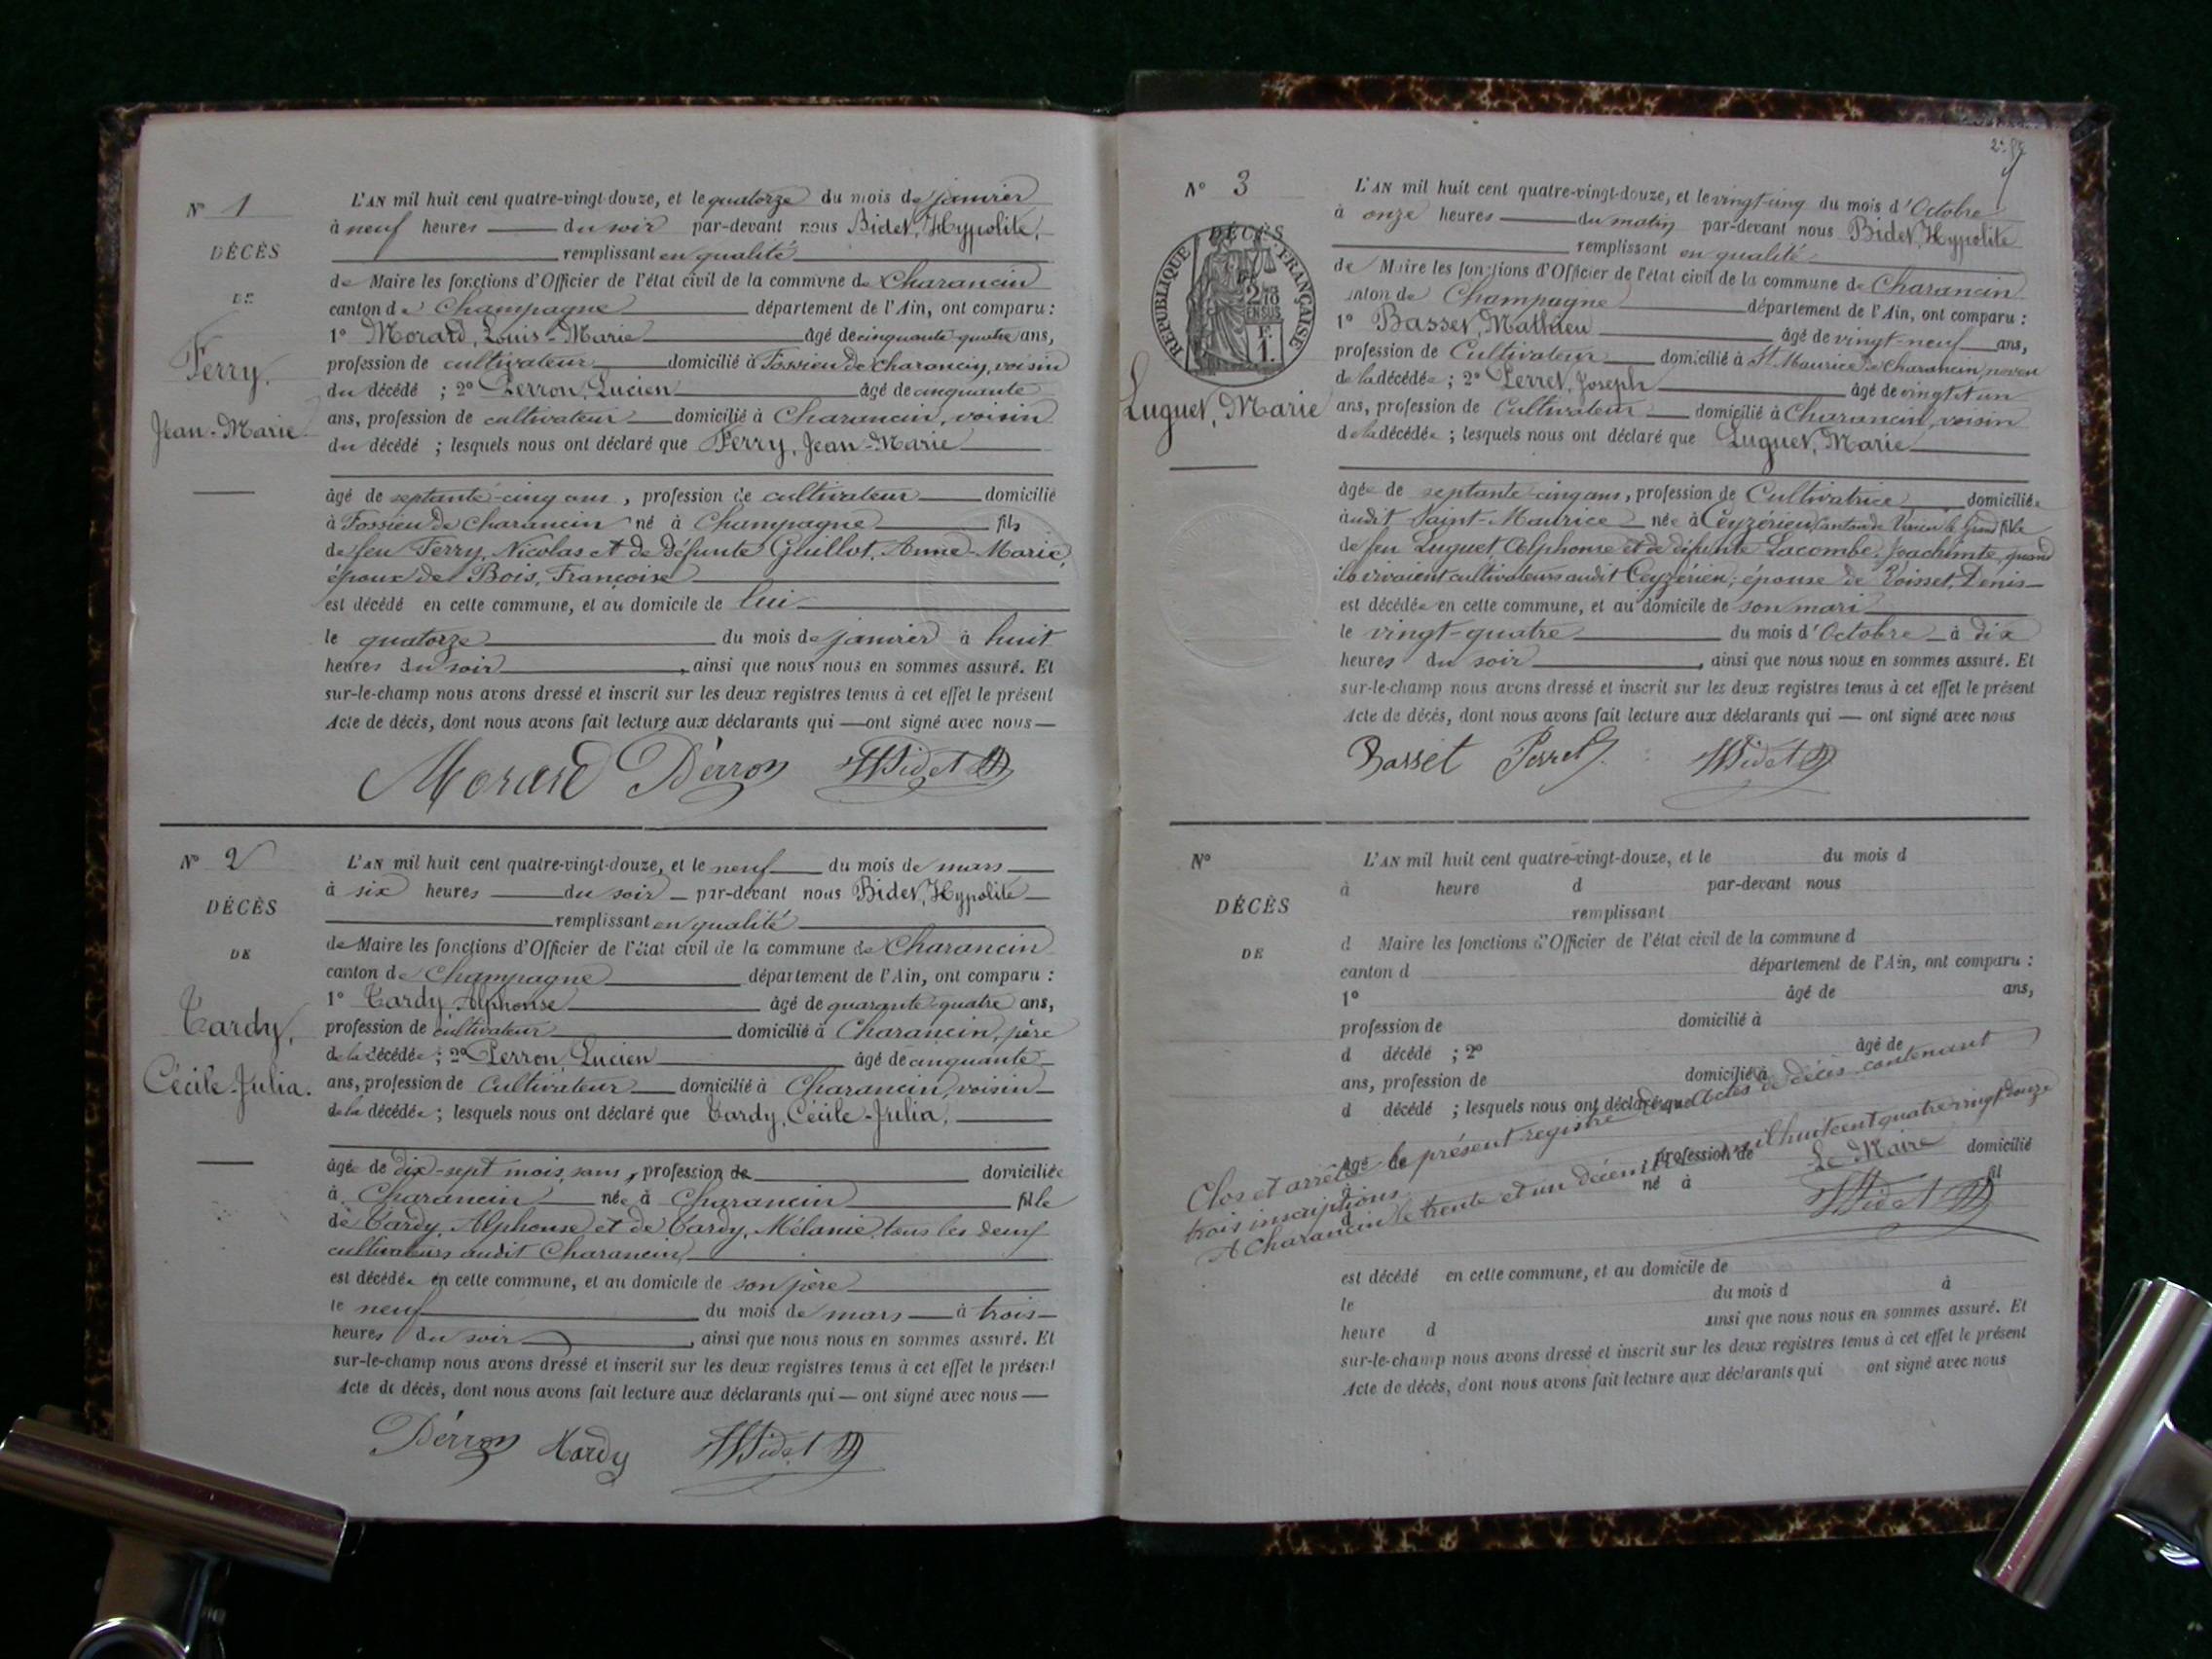 N° 1
DÉCÈS
DE
Ferry,
Jean-Marie
L'AN mil huit cent quatre-vingt-douze, et le quatorze du mois de janvier
à neuf heures du soir par-devant nous Bidet, Hypolite,
remplissant en qualité
de Maire les fonctions d'Officier de l'état civil de la commune de Charancin
canton de Champagne département de l'Ain, ont comparu :
1° Morard, Louis-Marie âgé de cinquante-quatre ans,
profession de cultivateur domicilié à Fossieu de charancin, voisin
du décédé ; 2° Perron, Lucien âgé de cinquante
ans, profession de cultivateur domicilié à Charancin, voisin
du décédé ; lesquels nous ont déclaré que Ferry, Jean-Marie
âgé de septante-cinq ans, profession de cultivateur domicilié
à Fossieu de Charancin né à Champagne fils
de feu Ferry, Nicolas et de défunte Guillot, Anne-Marie,
époux de Bois, Françoise
est décédé en cette commune, et au domicile de lui
le quatorze du mois de janvier à huit
heures du soir, ainsi que nous nous en sommes assuré. Et
sur-le-champ nous avons dressé et inscrit sur les deux registres tenus à cet effet le présent
Acte de décès, dont nous avons fait lecture aux déclarants qui — ont signé avec nous —
Morard Pérron HBidet
N° 2
DÉCÈS
DE
Tardy,
Cécile-Julia.
L'AN mil huit cent quatre-vingt-douze, et le neuf du mois de mars
à six heures du soir par-devant nous Bidet, Hypolite
remplissant en qualité
de Maire les fonctions d'Officier de l'état civil de la commune de Charancin
canton de Champagne département de l'Ain, ont comparu :
1° Tardy, Alphonse âgé de quarante-quatre ans,
profession de cultivateur domicilié à Charancin, père
de la décédée ; 2° Perron Lucien âgé de cinquante
ans, profession de Cultivateur domicilié à Charancin, voisin
de la décédée ; lesquels nous ont déclaré que Tardy, Cécile-Julia,
âgée de dix-sept mois, sans, profession de domiciliée
à Charancin née à Charancin fille
de Tardy, Alphonse et de Tardy, Mélanie, tous les deux
cultivateurs audit Charancin,
est décédée en cette commune, et au domicile de son père
le neuf du mois de mars à trois
heures du soir, ainsi que nous nous en sommes assuré. Et
sur-le-champ nous avons dressé et inscrit sur les deux registres tenus à cet effet le présent
Acte de décès, dont nous avons fait lecture aux déclarants qui — ont signé avec nous —
Pérron Tardy HBidet
N° 3
DÉCÈS
RÉPUBLIQUE FRANÇAISE
2/10 EN SUS
F. 1.
Luguet, Marie
L'AN mil huit cent quatre-vingt-douze, et le vingt-cinq du mois d'Octobre
à onze heures du matin par-devant nous Bidet, Hypolite
remplissant en qualité
de Maire les fonctions d'Officier de l'état civil de la commune de Charancin
canton de Champagne département de l'Ain, ont comparu :
1° Basset, Mathieu âgé de vingt-neuf ans,
profession de Cultivateur domicilié à St Maurice de Charancin, neveu
de la décédée ; 2° Perret, Joseph âgé de vingt et un
ans, profession de Cultivateur domicilié à Charancin, voisin
de la décédée ; lesquels nous ont déclaré que Luguet, Marie
âgée de septante-cinq ans, profession de Cultivatrice domiciliée
audit Saint-Maurice née à Ceyzérieu, canton de Virieu le Grand fille
de feu Luguet Alphonse et de défunte Lacombe, Joachimte, quand
ils vivaient cultivateurs audit Ceyzérieu ; épouse de Voisset, Denis
est décédée en cette commune, et au domicile de son mari
le vingt-quatre du mois d'Octobre à dix
heures du soir, ainsi que nous nous en sommes assuré. Et
sur-le-champ nous avons dressé et inscrit sur les deux registres tenus à cet effet le présent
Acte de décès, dont nous avons fait lecture aux déclarants qui — ont signé avec nous
Basset Perret HBidet
N°
DÉCÈS
DE
L'AN mil huit cent quatre-vingt-douze, et le du mois d
à heure d par-devant nous
remplissant
d Maire les fonctions d'Officier de l'état civil de la commune d
canton d département de l'Ain, ont comparu :
1° âgé de ans,
profession de domicilié à
d décédé ; 2° âgé de
ans, profession de domicilié à
d décédé ; lesquels nous ont déclaré que
âgé de profession de domicilié
à né à fil
d
Clos et arrêté le présent registre des Actes de décès contenant
trois inscriptions.
A Charancin le trente et un décembre mil huit cent quatre vingt douze
Le Maire
HBidet
est décédé en cette commune, et au domicile de
le du mois d à
heure d ainsi que nous nous en sommes assuré. Et
sur-le-champ nous avons dressé et inscrit sur les deux registres tenus à cet effet le présent
Acte de décès, dont nous avons fait lecture aux déclarants qui ont signé avec nous